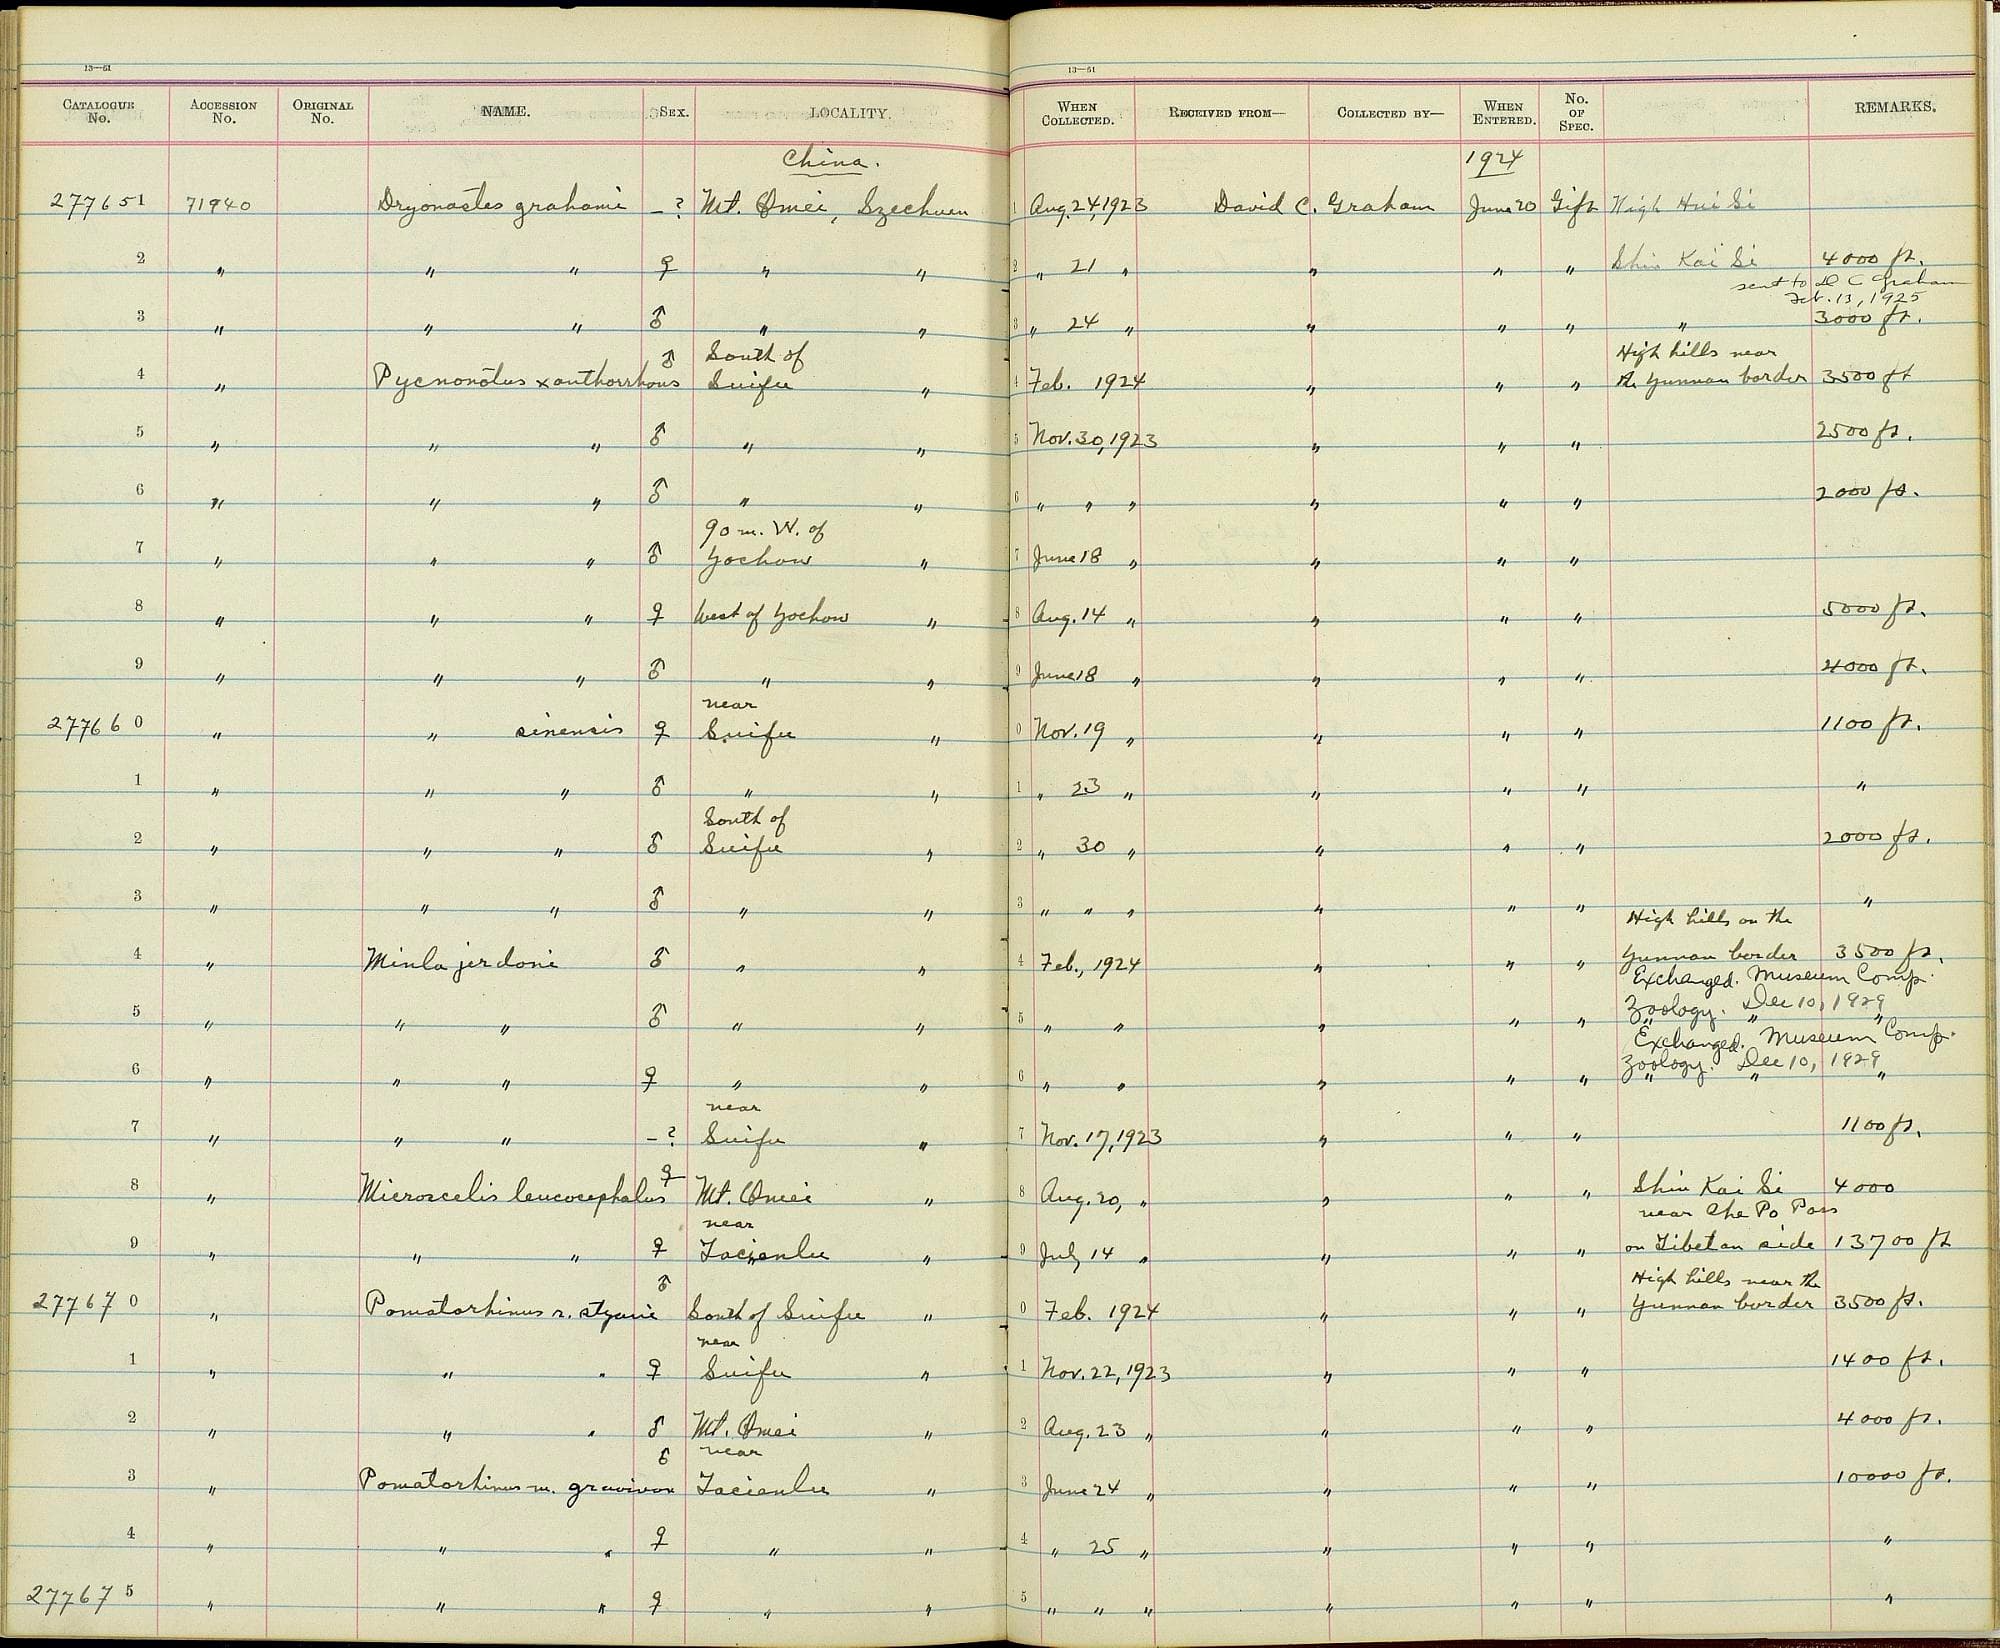 13—61
13—61
CATALOGUE No. ACCESSION No. ORIGINAL No. NAME. SEX. LOCALITY. WHEN COLLECTED. RECEIVED FROM— COLLECTED BY— WHEN ENTERED. No. OF SPEC. REMARKS.
China. 1924
277651 71940 Dryonastes grahami —? Mt. Omei, Szechuen 1 Aug. 24, 1923 David C. Graham June 20 Gift High Hui Si
2 " " " ♀ " " 2 " 21 " " " " Shin Kai Si 4000 ft.
sent to D C Graham
Feb. 13, 1925
3 " " " ♂ " " 3 " 24 " " " " " 3000 ft.
♂ South of High hills near
4 " Pycnonotus xanthorrhous Suifu " 4 Feb. 1924 " " " the Yunnan border 3500 ft
5 " " " ♂ " " 5 Nov. 30, 1923 " " " 2500 ft.
6 " " " ♂ " " 6 " " " " " " 2000 ft.
90 m. W. of
7 " " " ♂ Yochow " 7 June 18 " " " "
8 " " " ♀ West of Yochow " 8 Aug. 14 " " " " 5000 ft.
9 " " " ♂ " " 9 June 18 " " " " 4000 ft.
near
277660 " " sinensis ♀ Suifu " 0 Nov. 19 " " " " 1100 ft.
1 " " " ♂ " " 1 " 23 " " " " "
South of
2 " " " ♂ Suifu " 2 " 30 " " " " 2000 ft.
3 " " " ♂ " " 3 " " " " " " "
High hills on the
4 " Minla jerdoni ♂ " " 4 Feb., 1924 " " " Yunnan border 3500 ft.
Exchanged. Museum Comp.
Zoology. Dec 10, 1929
5 " " " ♂ " " 5 " " " " " " " "
Exchanged. Museum Comp.
Zoology. Dec 10, 1929
6 " " " ♀ " " 6 " " " " " " " "
near
7 " " " —? Suifu " 7 Nov. 17, 1923 " " " 1100 ft.
8 " Microscelis leucocephalus ♀ Mt. Omei " 8 Aug. 20, " " " " Shin Kai Si 4000
near near Che Po Pass
9 " " " ♀ Tacienlu " 9 July 14 " " " " on Tibetan side 13700 ft
♂ High hills near the
277670 " Pomatorhinus r. stycani South of Suifu " 0 Feb. 1924 " " " Yunnan border 3500 ft.
near
1 " " " ♀ Suifu " 1 Nov. 22, 1923 " " " 1400 ft.
2 " " " ♂ Mt. Omei " 2 Aug. 23 " " " " 4000 ft.
♂ near
3 " Pomatorhinus m. gravivox Tacienlu " 3 June 24 " " " " 10000 ft.
4 " " " ♀ " " 4 " 25 " " " " "
277675 " " " ♀ " " 5 " " " " " " "